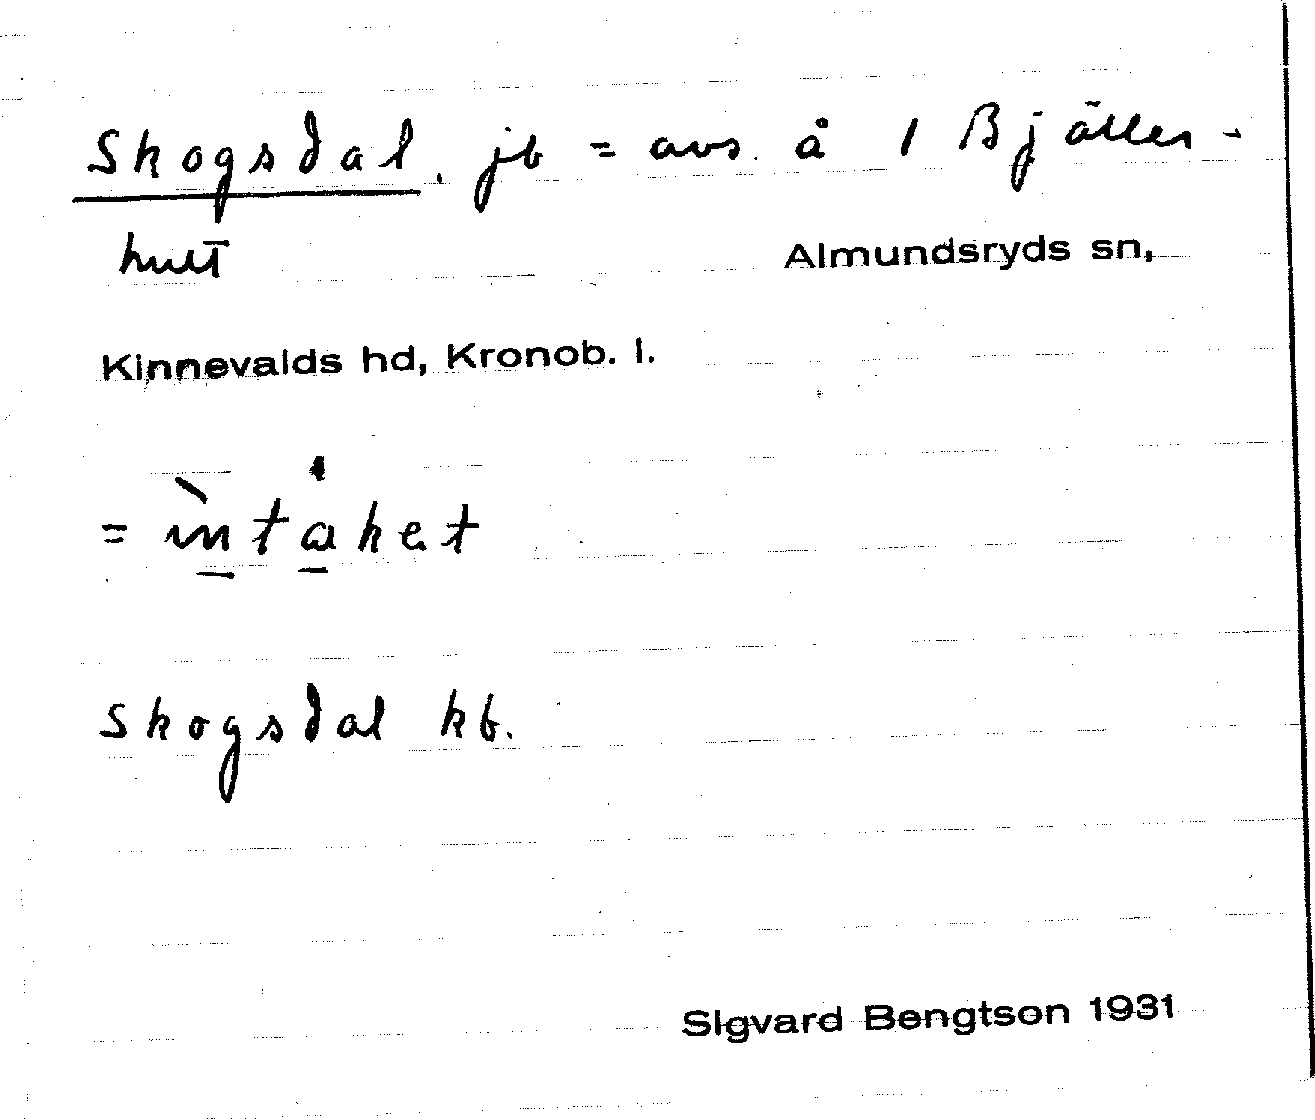 Skogsdal. jb = avs. å 1 Bjäller-
hult Almundsryds sn,
Kinnevalds hd, Kronob. l.
= ìntaket
Skogsdal kb.
Sigvard Bengtson 1931